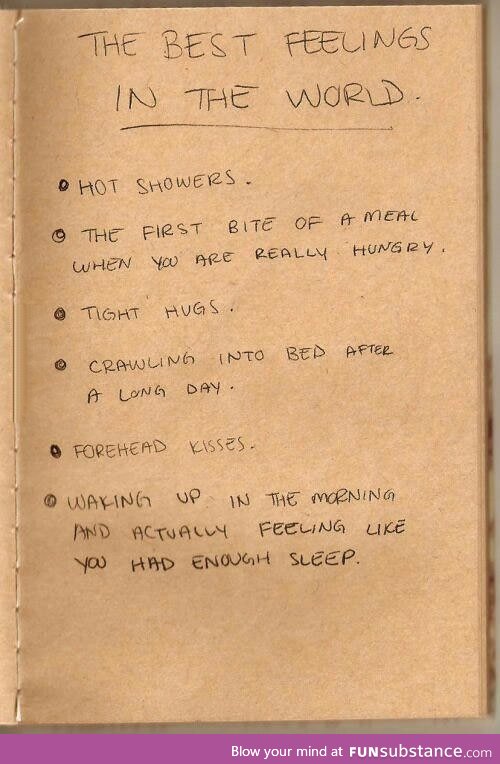 THE BEST FEELINGS
IN THE WORLD.
HOT SHOWERS.
THE FIRST BITE OF A MEAL
WHEN YOU ARE REALLY HUNGRY.
TIGHT HUGS.
CRAWLING INTO BED AFTER
A LONG DAY.
FOREHEAD KISSES.
WAKING UP IN THE MORNING
AND ACTUALLY FEELING LIKE
YOU HAD ENOUGH SLEEP.
Blow your mind at FUNsubstance.com